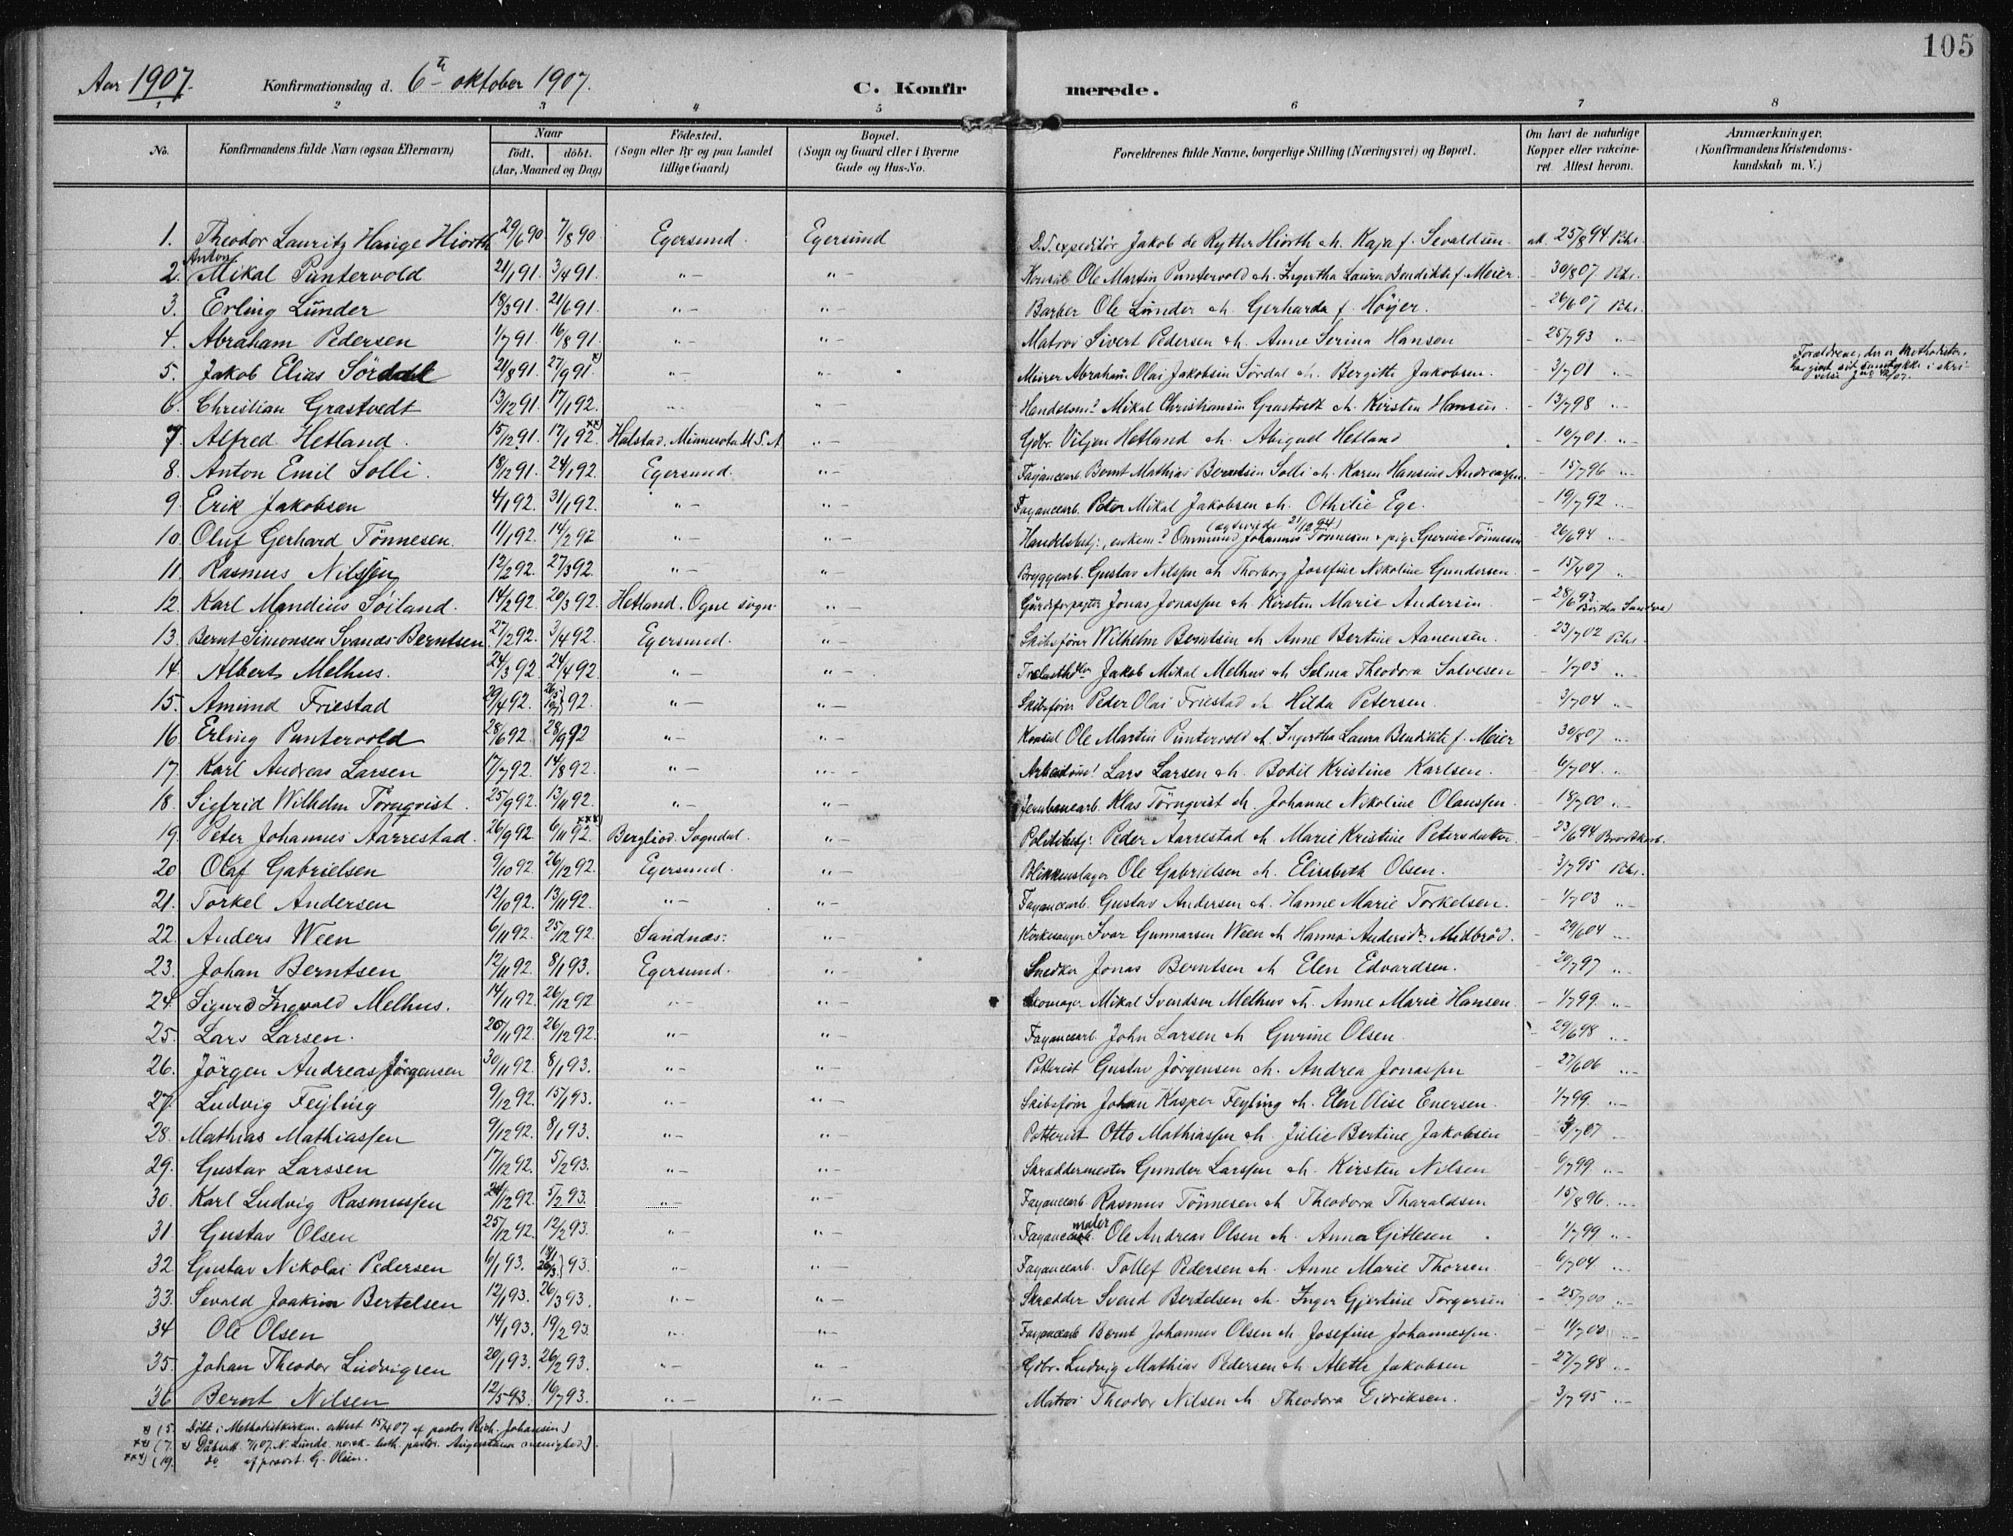 105
Aar 1907. Konfirmationsdag d. 6te oktober 1907. C. Konfirmerede.
1 2 3 4 5 6 7 8
No. Konfirmandens fulde Navn (ogsaa Efternavn) Naar födt. döbt. (Aar, Maaned og Dag) Födested. (Sogn eller By og paa Landet tillige Gaard) Bopæl. (Sogn og Gaard eller i Byerne Gade og Hus-No. Forældrenes fulde Navne, borgerlige Stilling (Næringsvei) og Bopæl. Om havt de naturlige Kopper eller vakcineret. Attest herom. Anmærkninger. (Konfirmandens Kristendomskundskab m. V.)
1. Theodor Lauritz Hauge Hiorth 29/6 90 7/8 90 Egersund. Egersund D.S. expeditör Jakob de Rytter Hiorth & Kaja f. Sevaldsen. att. 25/8 94 Bhs.
2. Anton Mikal Puntervold 21/1 91. 3/4 91. "– "– Konsul Ole Martin Puntervold & Ingertha Laura Bendikte f. Meier. – 30/8 07. Bhs.
3. Erling Lunder 18/3 91. 21/6 91. "– "– Barber Ole Lunder & Gerharda f. Höyer. – 26/6 07 Bhs.
4. Abraham Pedersen 1/7 91. 16/8 91. "– "– Matros Sivert Pedersen & Anne Serina Hansen – 25/7 93 "–
5. Jakob Elias Sördal 21/8 91. 27/9 91. x) "– "– Meirer Abraham Olai Jakobsen Sördal & Bergitte Jakobsen. – 3/7 01 "– Forældrene, der er Methodister, har givet sit samtykke i skrivelse
6. Christian Grastvedt 13/12 91 17/1 92. "– "– Handelsm. Mikal Christiansen Grastvedt & Kirsten Hansen. – 13/7 98 "–
7. Alfred Hetland. 15/12 91. 17/1 92 xx) Halstad, Minnesota U.S.A. "– Gdbr. Viljen Hetland & Abigael Hetland – 10/7 01. "–
8. Anton Emil Solli. 18/12 91. 24/1 92. Egersund. "– Fayancearb. Bernt Mathias Berntsen Solli & Karen Hansine Andreassen. – 15/7 96 "–
9. Erik Jakobsen 4/1 92. 31/1 92. "– "– Fayancearb. Peter Mikal Jakobsen & Othilie Ege. – 19/7 92 "–
10. Oluf Gerhard Tönnesen. 11/1 92. 14/2 92 "– "– Handelsbetj., enkem. Ommund Johannes Tönnesen & pig Gurine Tönnesen (ægteviede 21/12 94) – 26/6 94 "–
11. Rasmus Nilssen 12/2 92. 27/3 92. "– "– Bryggearb. Gustav Nilssen & Thorborg Josefine Nikoline Gundersen. – 15/4 07 "–
12. Karl Mandius Söiland. 14/2 92. 20/3 92. Hetland. Ogne sogn. "– Gårdsforpagter Jonas Jonassen & Kirsten Marie Andersen. – 28/6 93. Bertha Sandva
13. Bernt Simonsen Svanes Berntsen. 27/2 92. 3/4 92. Egersund. "– Skibsförer Wilhelm Berntsen & Anne Bertine Aanensen. – 23/7 02 Bhs.
14. Albert Melhus. 24/3 92 24/4 92. "– "– Trælasth. Jakob Mikal Melhus & Selma Theodora Salvesen – 1/7 03 "–
15. Amund Friestad 29/4 92. 26/5 10/7 } 92. "– "– Skibsförer Peder Olai Friestad & Hilda Petersen. – 3/7 04 "–
16. Erling Puntervold 28/6 92. 28/9 92 "– "– Konsul Ole Martin Puntervold & Ingertha Laura Bendikte f. Meier 30/8 07 "–
17. Karl Andreas Larsen 17/7 92. 14/8 92. "– "– Arbeidsm. Lars Larsen & Bodil Kristine Karlsen. – 6/7 04. "–
18. Sigfrid Wilhelm Törnqvist. 25/9 92. 13/11 92. "– "– Jernbanearb. Klas Törnqvist & Johanne Nikoline Olaussen. – 18/7 00 "–
19. Peter Johannes Aarrestad. 26/9 92. 6/11 92. xxx) Bergliod. Sogndal. "– Politibetj. Peder Aarrestad & Marie Kristine Petersdatter. – 23/6 94
20 Olaf Gabrielsen 9/10 92. 26/12 92. Egersund. "– Blikkenslager Ole Gabrielsen & Elisabeth Olsen. – 3/7 95 Bhs.
21. Torkel Andersen 12/10 92. 13/11 92. "– "– Fayancearb. Gustav Andersen & Hanne Marie Torkelsen. – 1/7 03 "–
22. Anders Ween 6/11 92. 25/12 92. Sandnæs. "– Kirkesanger Ivar Gunnarsen Ween & Hanna Andersdr. Midbröd. – 29/6 04 "–
23. Johan Berntsen 12/11 92. 8/1 93. Egersund. "– Snedker Jonas Berntsen & Elen Edvardsen. – 20/7 97 "–
24. Sigurd Ingvald Melhus. 14/11 92. 26/12 92 "– "– Skomager Mikal Svendsen Melhus & Anne Marie Hansen. – 4/7 99. "–
25. Lars Larsen. 20/11 92. 26/12 92. "– "– Fayancearb. John Larsen & Gurine Olsen. – 29/6 98 "–
26. Jörgen Andreas Jörgensen 30/11 92. 8/1 93. "– "– Potterist Gustav Jörgensen & Andrea Jonassen – 27/6 06 "–
27. Ludvig Feyling 9/12 92. 15/1 93. "– "– Skibsförer Johan Kasper Feyling & Elen Olise Enersen. – 1/7 99. "–
28. Mathias Mathiassen 9/12 92. 8/1 93. "– "– Potterist Otto Mathiassen & Julie Bertine Jakobsen – 3/7 07 "–
29. Gustav Larssen 17/12 92. 5/2 93. "– "– Skræddermester Gunder Larssen & Kirsten Nilsen – 6/7 99. "–
30. Karl Ludvig Rasmussen 24/12 92. 5/2 93. "– "– Fayancearb Rasmus Tönnesen & Theodora Tharaldsen – 15/8 96. "–
31 Gustav Olsen 25/12 92. 12/2 93. "– "– Fayancemaler Ole Andreas Olsen & Anna Gitlesen – 1/7 99 "–
32. Gustav Nikolai Pedersen 6/1 93. 18/1 26/3 } 93. "– "– Fayancearb. Tollef Pedersen & Anne Marie Thorsen. – 6/7 04 "–
33. Sevald Joakim Bertelsen 12/1 93. 26/3 93. "– "– Skrædder Svend Bertelsen & Inger Gjertine Torgersen – 25/7 00 "–
34 Ole Olsen 14/1 93. 19/2 93. "– "– Fayancearb Bernt Johannes Olsen & Josefine Johannessen. – 11/7 00 "–
35. Johan Theodor Ludvigsen 20/1 93. 26/2 93. "– "– Gdbr. Ludvig Mathias Pedersen & Alette Jakobsen – 27/7 98 "–
36 Bernt Nilsen 12/5 93. 16/7 93. "– "– Matros Theodor Nilsen & Theodora Eidriksen. – 3/7 95 "–
x) (5. Döbt i Methodistkirken. attest 15/4 07 af pastor Rich. Johansen)
xx) (7. Dåbsatt. 7/1 07. N. Lunde norsk-luth. pastor Augustana menighed).
xxx) (19. do af provst G. Olsen.